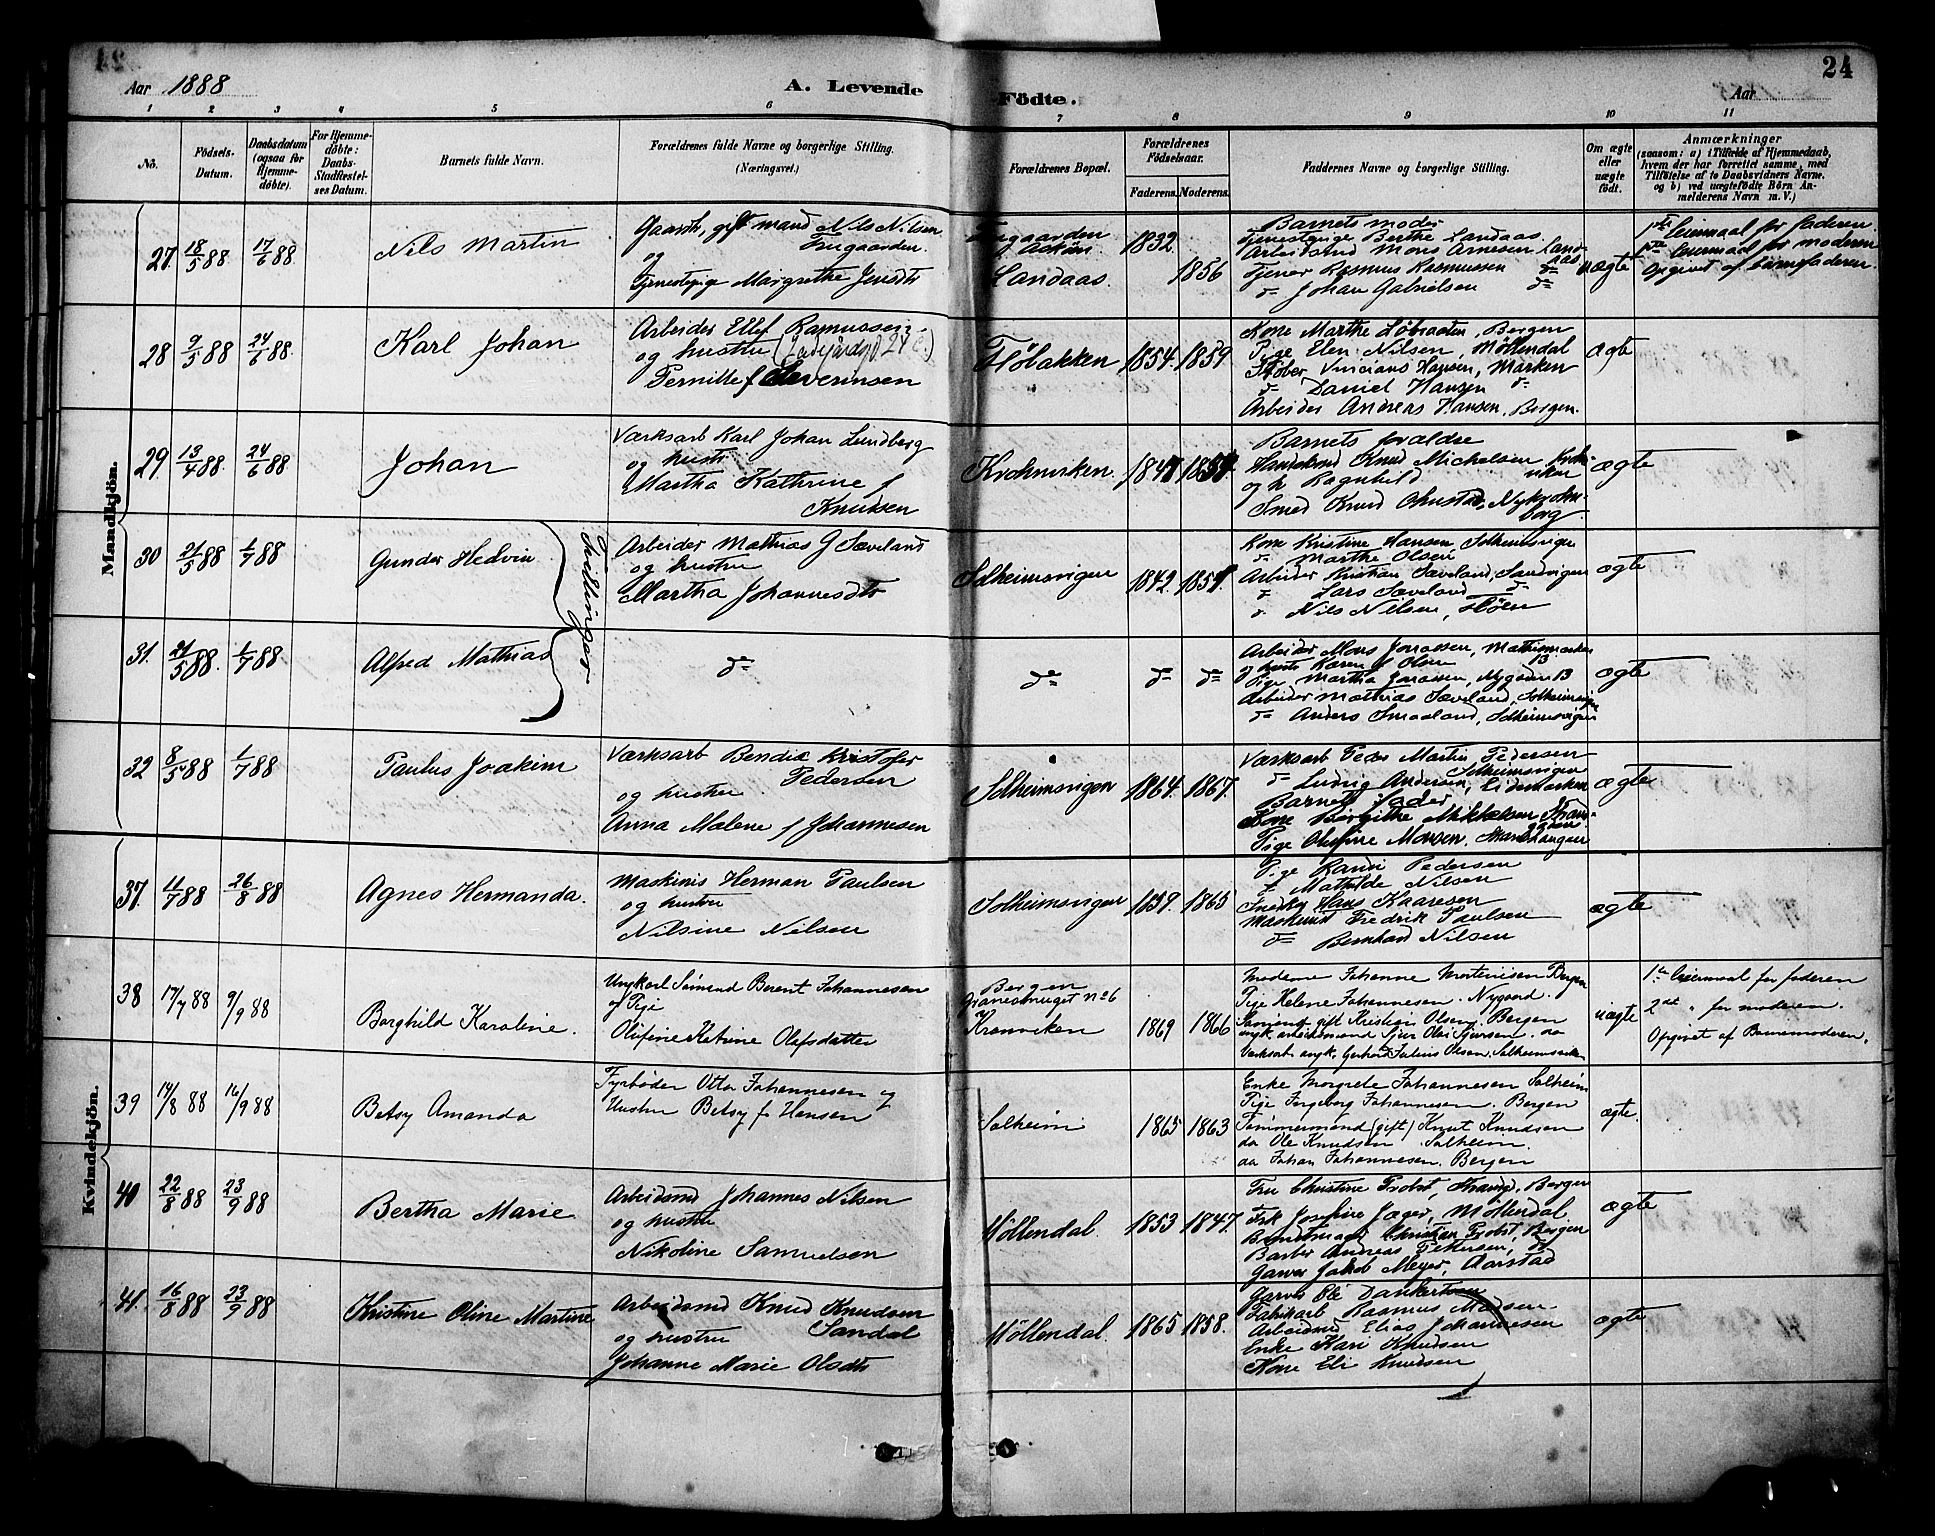 24
Aar 1888
A. Levende Födte.
Aar
1 2 3 4 5 6 7 8 9 10 11
No.
Födsels-Datum.
Daabsdatum (ogsaa for Hjemme-döbte).
For Hjemme-döbte: Daabs-Stadfæstel-ses Datum.
Barnets fulde Navn.
Forældrenes fulde Navne og borgerlige Stilling.
(Næringsvei.)
Forældrenes Bopæl.
Forældrenes Födselsaar.
Faderens. Moderens.
Faddernes Navne og borgerlige Stilling.
Om ægte eller uægte födt.
Anmærkninger
(saasom: a) i Tilfælde af Hjemmedaab,
hvem der har forrettet samme, med
Tilföielse af to Daabsvidners Navne.
og b) ved uægtefödte Börn An-
melderens Navn m. V.)
Mandkjön.
27. 18/5 88 17/6 88
Nils Martin
Gaardb, gift mand Nils Nilsen
og
Tjenestepige Margrethe Jensdtr
Askøn.
Landaas.
1832
1856
Barnets moder
Tjenestepige Berthe Landaas.
Arbeidsmd Mons Arnesen Land-
aas
Tjener Rasmus Rasmussen do
do Johan Gabrielsen do
uægte
1ste leiermaal for faderen.
leiermaal for moderen
Opgivet af barnefaderen.
28 9/5 88 24/6 88.
Karl Johan
Arbeider Ellef Rasmussen
og hustru
Pernille f Severinsen
Fløbakken
1854. 1859
Kone Marthe Løbraaten, Bergen
Pige Elen Nilsen, Møllendal
Støber Hansen, Marken
do Daniel Hansen do
Arbeider Andreas Hansen. Bergen.
ægte
29. 13/4 88. 24/6 88
Johan
Værksarb Karl Johan Lundberg
og hustr
Martha Kathrine f
Knudsen
Barnets forældre
Knud Michelsen
og h Ragnhild
Smed Knud
ægte
30 21/5 88 1/7 88
Gunder Hedvin
Tvillinger
Arbeider Mathias G Sæveland
og hustru
Martha Johannesdtr
Solheimsvigen
1842.
Kone Kristine Hansen Solheimsvigen
do Marthe Olsen
Arbeider Kristian Sæveland, Sandvigen
do Lars Sæveland do
do Nils Nilsen,
ægte
31. 21/5 88. 1/7 88
Alfred Mathias
do
do
do do
Arbeider Mons Jonassen,
og hustr Karen f Olsen
Pige Martha Jonassen, Nygaard 13
Arbeider Mathias Sæveland, Solheimsvigen
do Anders Smaaland, Solheimsvigen
ægte
32 8/5 88 1/7 88
Paulus Joakim
Værksarb Bendix Kristofer
Pedersen
og hustru
Anna Malene f Johannesen
Solheimsvigen
1864. 1867.
Værksarb Peder Martin Pedersen
Solheimsvigen
do Ludvig Andersen,
Barnets fader
Kone Birgithe Mikkelsen
Pige
ægte
Kvindekjön.
37. 11/7 88 26/8 88
Agnes Hermanda.
Maskinis Herman Paulsen
og hustru
Nilsine Nilsen
Solheimsvigen
1859. 1865
Pige Randi Pedersen
Mathilde Nilsen
Snedker Hans Kaaresen
Maskinist Fredrik Paulsen
do Bernhard Nilsen
ægte
38 17/7 88 9/9 88
Borghild Karoline.
Ungkarl Sömand Berent Johannesen
og Pige
Olufine Katrine Olefsdatter
Bergen
No 6
Kronviken
1869 1866
Moderen Johanne Mortensen Bergen
Pige Helene Johannesen. Nygaard.
Sømand gift Kristian Olsen. Bergen
ungk. arbeidsmand Sjur Olai Sjursen. do
Værksarb. ungk. Gerhard Julius Olsen. Solheimsviken
uægte
1ste leiermaal for faderen
2det " for moderen.
Opgivet af Barnemoderen.
39 14/8 88 16/9 88
Betsy Amanda
Fyrbøder Otto Johannesen og
Hustru Betsy f. Hansen
Solheim
1865 1863
Enke Margrete Johannesen Solheim
Pige Ingeborg Johannesen. Bergen
Tømmermand (gift) Knut Knudsen
do Ole Knudsen Solheim
do Johan Johannesen. Bergen
ægte.
40 22/8 88 23/9 88
Bertha Marie
Arbeidsmd Johannes Nilsen
og hustru
Nikoline Samuelsen
Møllendal.
1853 1847.
Fru Christine Probst, Bergen
Frk Josefine Jæger, Møllendal
Christian Probst, Bergen
Barber Andreas Pettersen, do
Garver Jakob Meyer, Aarstad
ægte
41. 16/8 88 23/9 88
Kristine Oline Martine
Arbeidsmd Knud Knudsen
Sandal
og hustru
Johanne Marie Olsdtr
Møllendal.
1865 1858.
Garver Ole Dankertsen
Fabrikarb Rasmus Madsen
Arbeidsmd Elias Johannesen
Enke Kari Knudsen
Kone Eli Knudsen
ægte